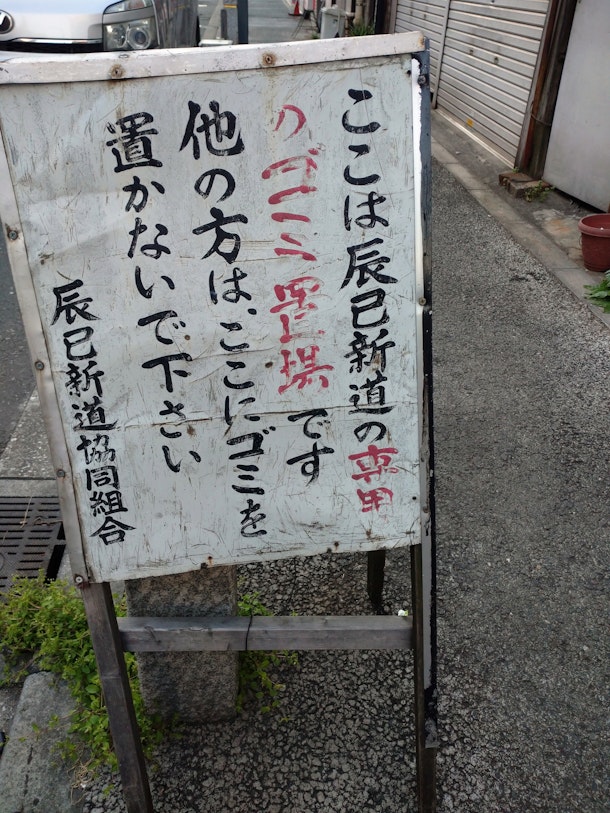 ここは辰巳新道の専用
のゴミ置場です
他の方は、ここにゴミを
置かないで下さい
辰巳新道協同組合